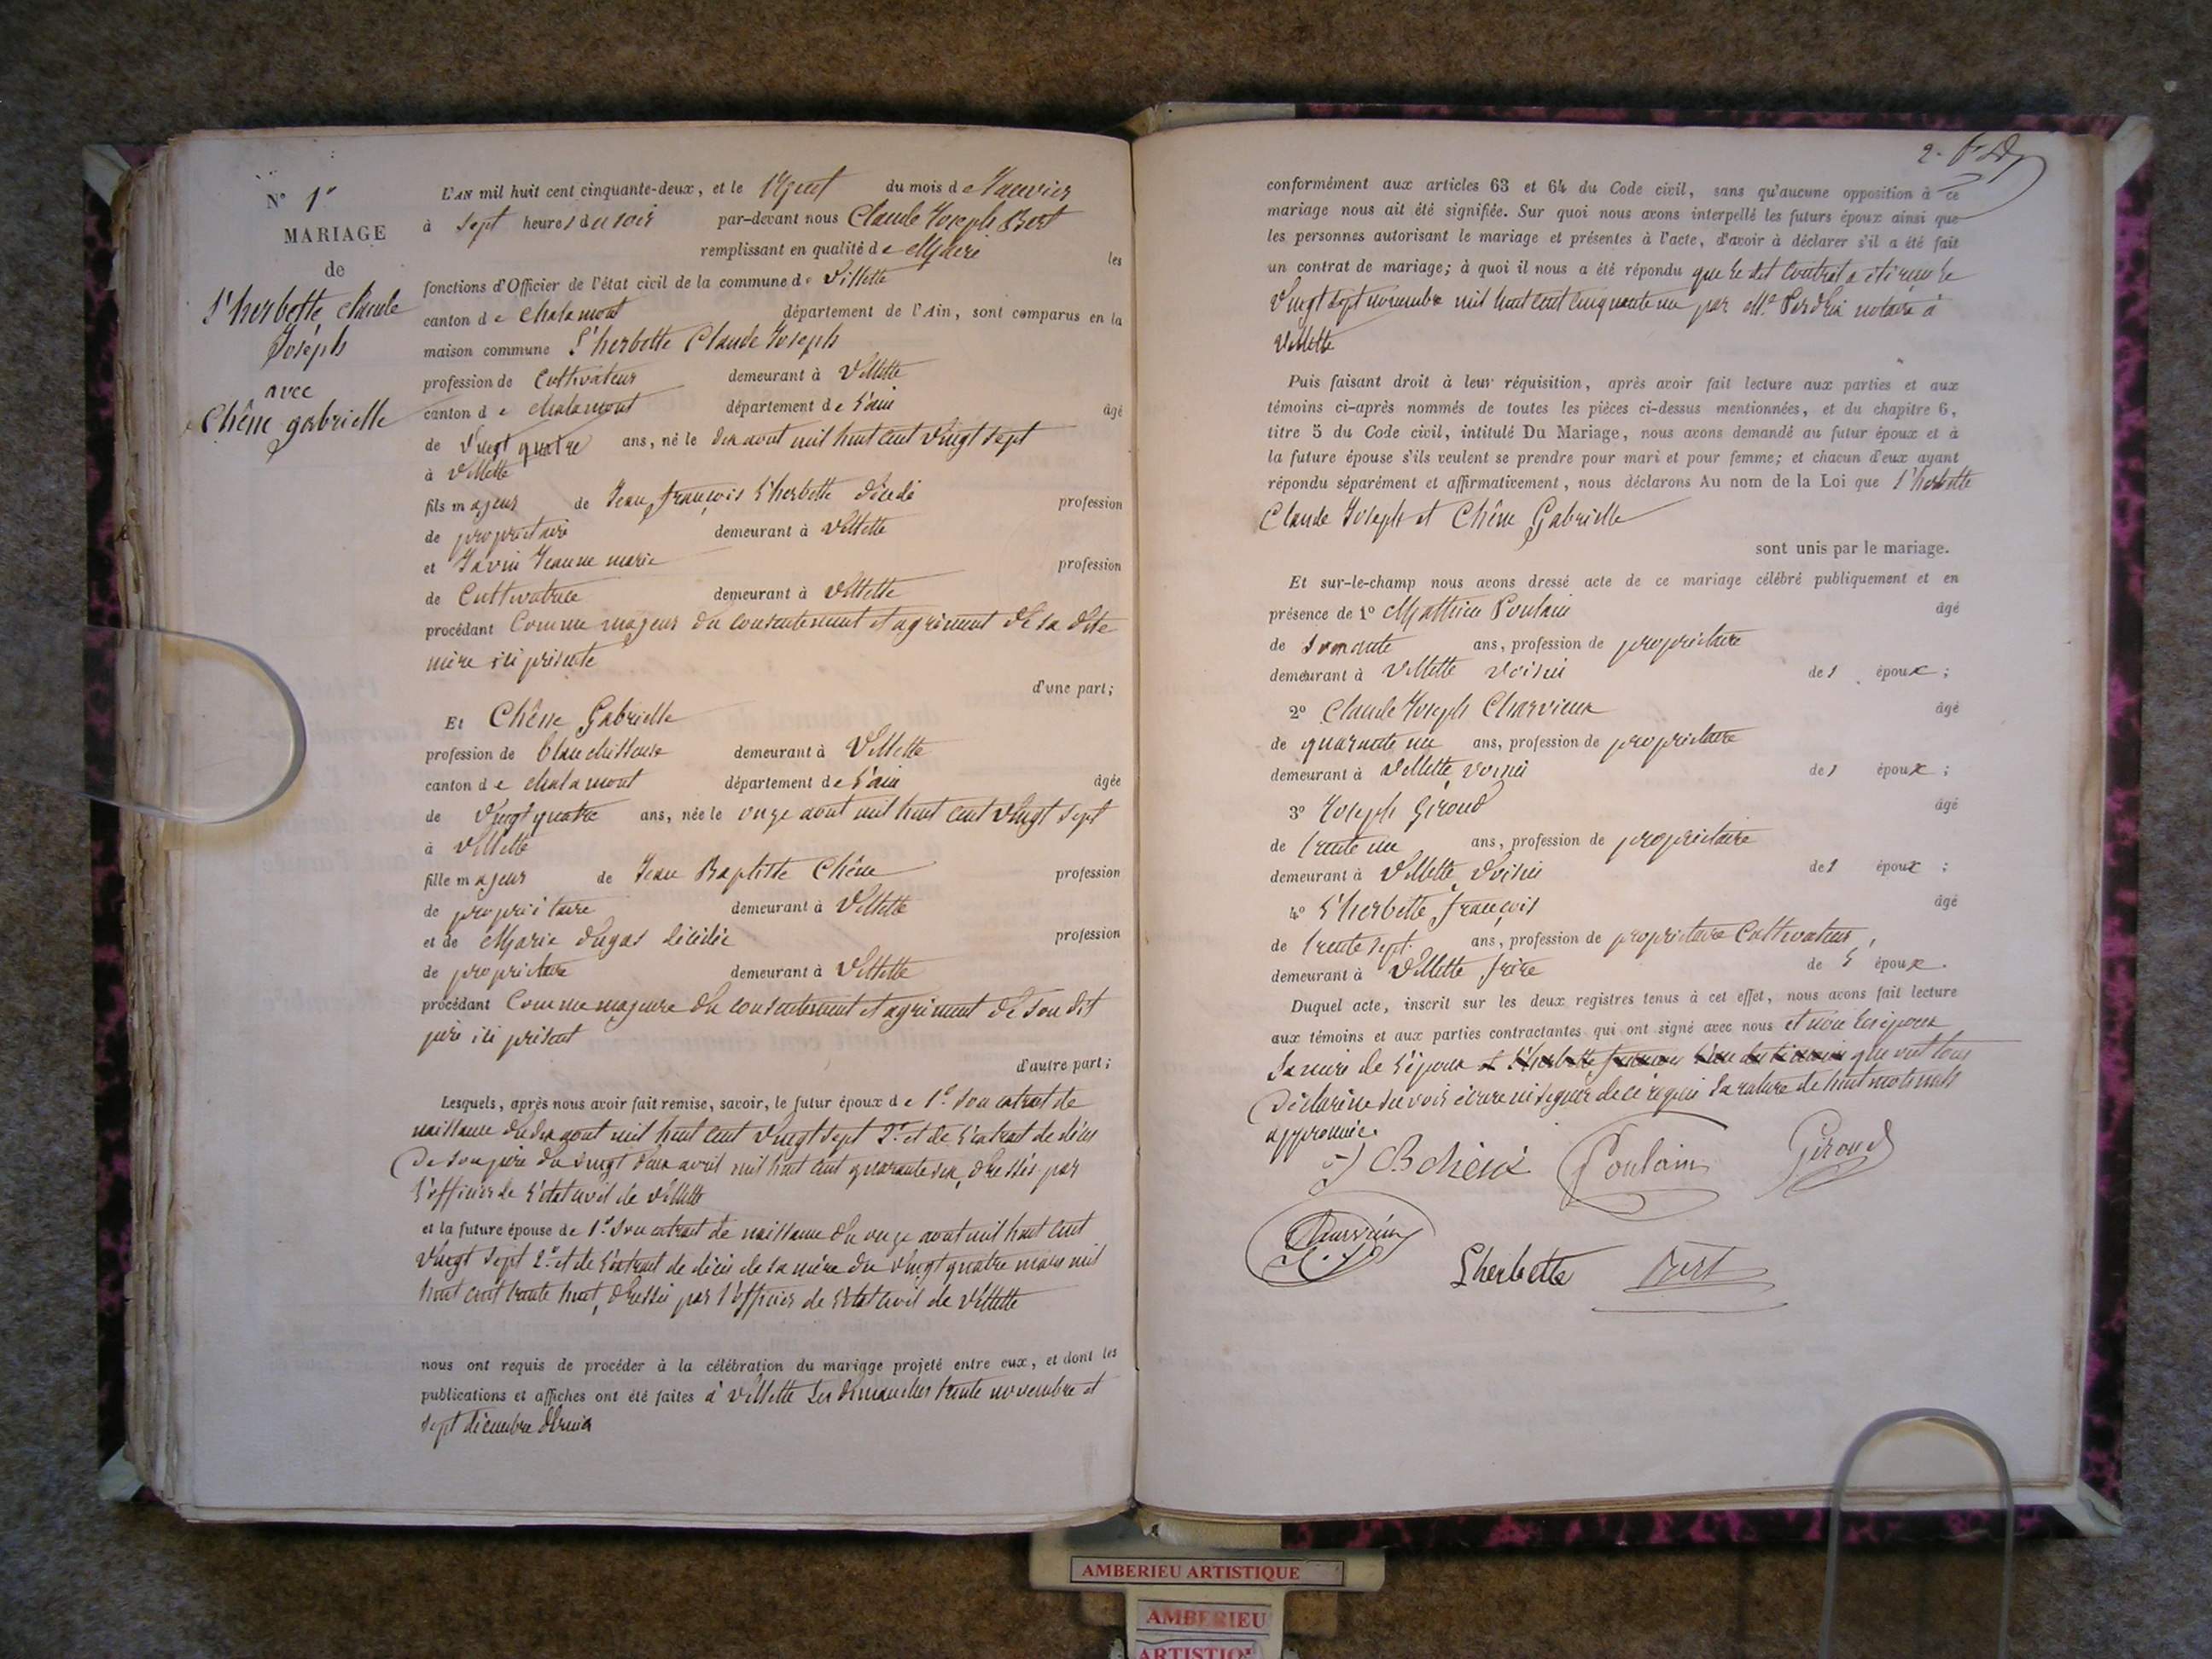 N° 1er
MARIAGE
de
L'herbette claude
Joseph
avec
Chêne gabrielle
L'AN mil huit cent cinquante-deux, et le du mois de Janvier
à sept heures du soir par-devant nous Claude Joseph Bert
remplissant en qualité de Maire les
fonctions d'Officier de l'état civil de la commune de Villette
canton de chalamont département de l'Ain, sont comparus en la
maison commune L'herbette Claude Joseph
profession de Cultivateur demeurant à Villette
canton de chalamont département de l'ain âgé
de Vingt quatre ans, né le dix aout mil huit cent vingt sept
à Villette
fils majeur de Jean françois L'herbette décédé profession
de propriétaire demeurant à Villette
et Jeanne marie profession
de Cultivatrice demeurant à Villette
procédant Comme majeur du consentement et agrément de sa dite
mère ici présente
d'une part;
Et Chêne Gabrielle
profession de blanchisseuse demeurant à Villette
canton de chalamont département de l'ain âgée
de Vingt quatre ans, née le onze aout mil huit cent vingt sept
à Villette
fille majeur de Jean Baptiste Chêne profession
de propriétaire demeurant à Villette
et de Marie dugas décédée profession
de propriétaire demeurant à Villette
procédant Comme majeure du consentement et agrément de son dit
père ici présent
d'autre part;
Lesquels, après nous avoir fait remise, savoir, le futur époux de 1° son extrait de
naissance du dix aout mil huit cent vingt sept 2° et de l'extrait de décès
de son père du vingt deux avril mil huit cent quarante six, dressés par
l'officier de l'état civil de Villette
et la future épouse de 1° son extrait de naissance du onze aout mil huit cent
vingt sept 2° et de l'extrait de décès de sa mère du vingt quatre mars mil
huit cent trente huit, dressés par l'officier de l'état civil de Villette
nous ont requis de procéder à la célébration du mariage projeté entre eux, et dont les
publications et affiches ont été faites à Villette les dimanches trente novembre et
sept décembre dernier
2.
conformément aux articles 63 et 64 du Code civil, sans qu'aucune opposition à ce
mariage nous ait été signifiée. Sur quoi nous avons interpellé les futurs époux ainsi que
les personnes autorisant le mariage et présentes à l'acte, d'avoir à déclarer s'il a été fait
un contrat de mariage; à quoi il nous a été répondu que le dit contrat a été reçu le
vingt sept novembre mil huit cent cinquante un par Me Perdrix notaire à
Villette
Puis faisant droit à leur réquisition, après avoir fait lecture aux parties et aux
témoins ci-après nommés de toutes les pièces ci-dessus mentionnées, et du chapitre 6,
titre 5 du Code civil, intitulé Du Mariage, nous avons demandé au futur époux et à
la future épouse s'ils veulent se prendre pour mari et pour femme; et chacun d'eux ayant
répondu séparément et affirmativement, nous déclarons Au nom de la Loi que L'herbette
Claude Joseph et Chêne Gabrielle
sont unis par le mariage.
Et sur-le-champ nous avons dressé acte de ce mariage célébré publiquement et en
présence de 1° Matthieu Poulain âgé
de ans, profession de propriétaire
demeurant à Villette voisin des époux;
2° Claude Joseph Charvieux âgé
de quarante un ans, profession de propriétaire
demeurant à Villette voisin des époux;
3° Joseph Giroud âgé
de trente un ans, profession de propriétaire
demeurant à Villette voisin des époux;
4° L'herbette françois âgé
de trente sept ans, profession de propriétaire Cultivateur,
demeurant à Villette frère de l'époux.
Duquel acte, inscrit sur les deux registres tenus à cet effet, nous avons fait lecture
aux témoins et aux parties contractantes qui ont signé avec nous et non les époux
la mère de l'époux et L'herbette que ont tous
déclaré ne savoir écrire ni signer de ce requis la rature de huit mots nuls
approuvée.
Poulain Giroud
Lherbette Bert
AMBERIEU ARTISTIQUE
AMBERIEU
ARTISTIQ